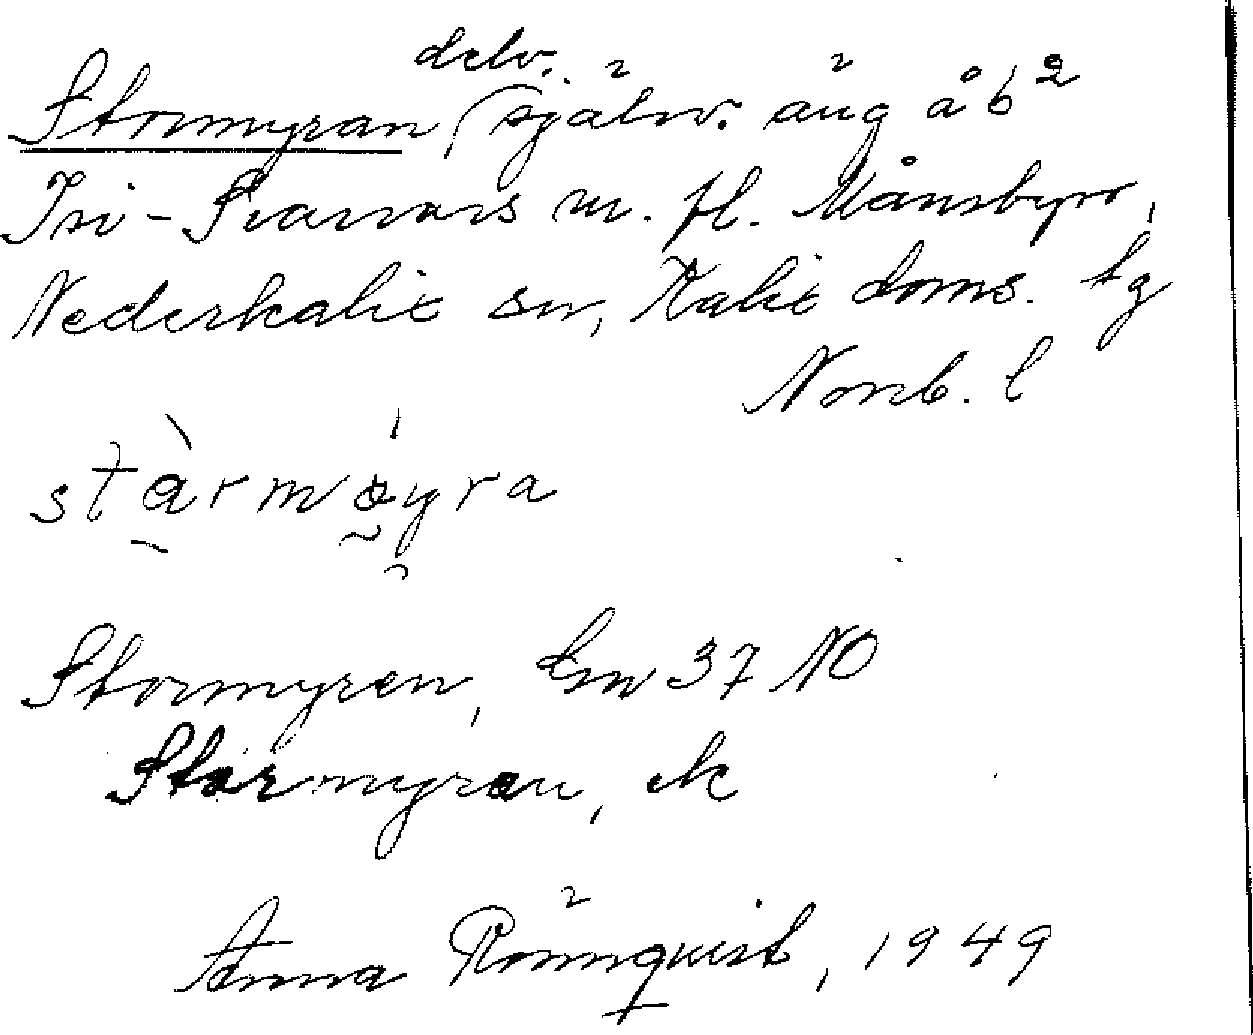 delv.
Stormyran (självr. äng åb²
Isi-Svanvars m. fl. Månsbyn,
Nederkalix sn, Kalix doms. tg
Norrb. l
stàrmøyra
Stormyren, Gm 37 NO
Stormyran, ek
Anna Rönnquist, 1949